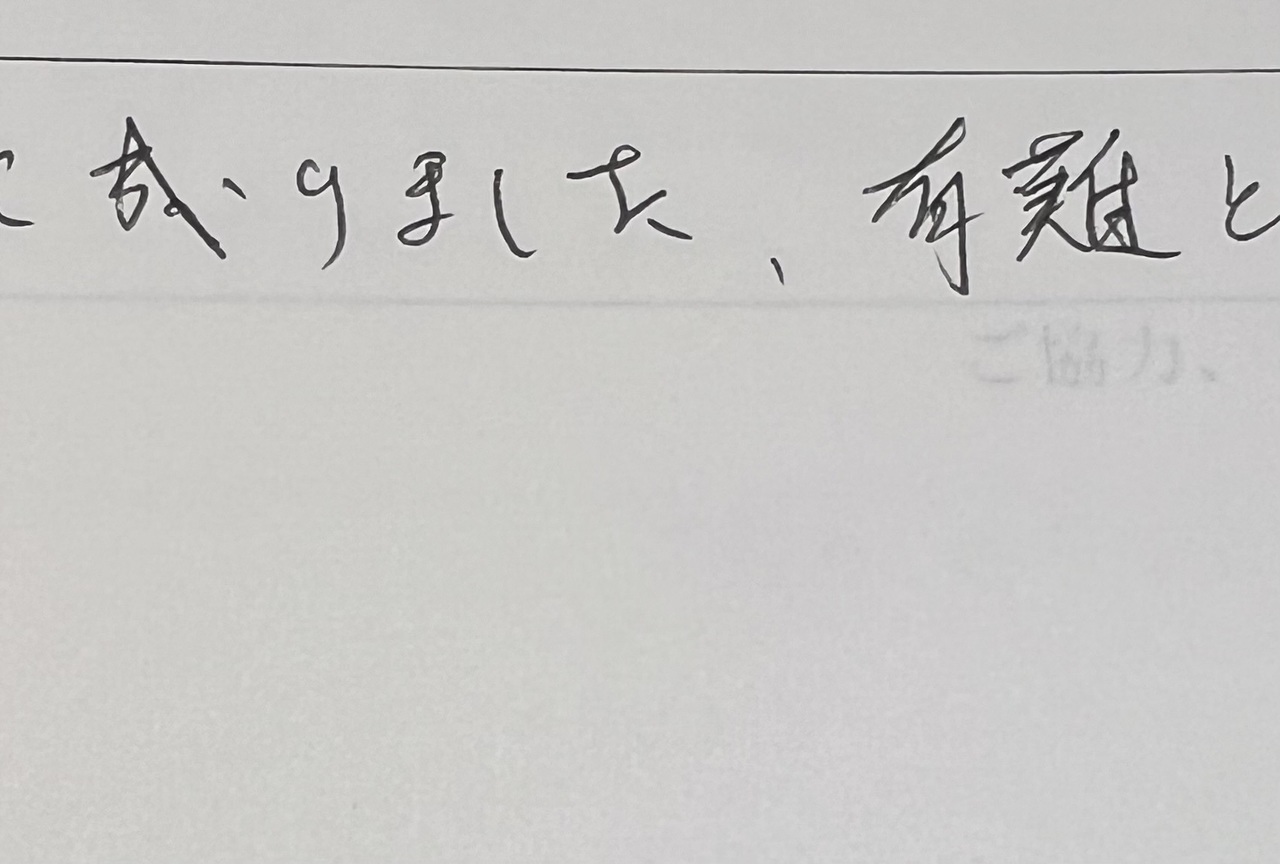 に成りました、有難と
ご協力、